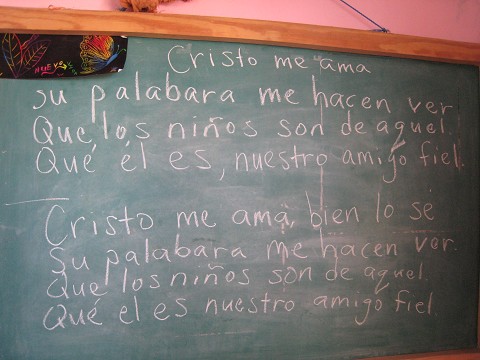 NUEVO
Cristo me ama
su palabara me hacen ver
Que los niños son de aquel.
Qué él es, nuestro amigo fiel.
Cristo me ama, bien lo sé
Su palabara me hacen ver.
Que los niños son de aquel.
Qué él es nuestro amigo fiel